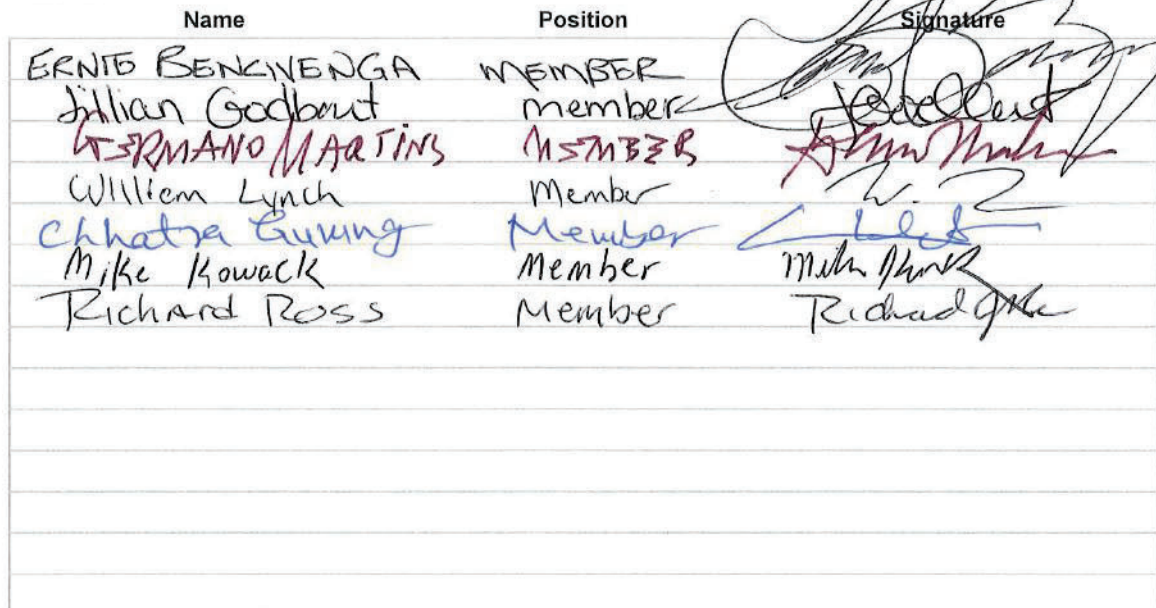 Name Position Signature
ERNIE BENCIVENGA MEMBER
Jillian Godbout member
GERMANO MARTINS MEMBER
William Lynch Member W. L
Chhatra Gurung Member
Mike Kowack Member Mike
Richard Ross Member Richard